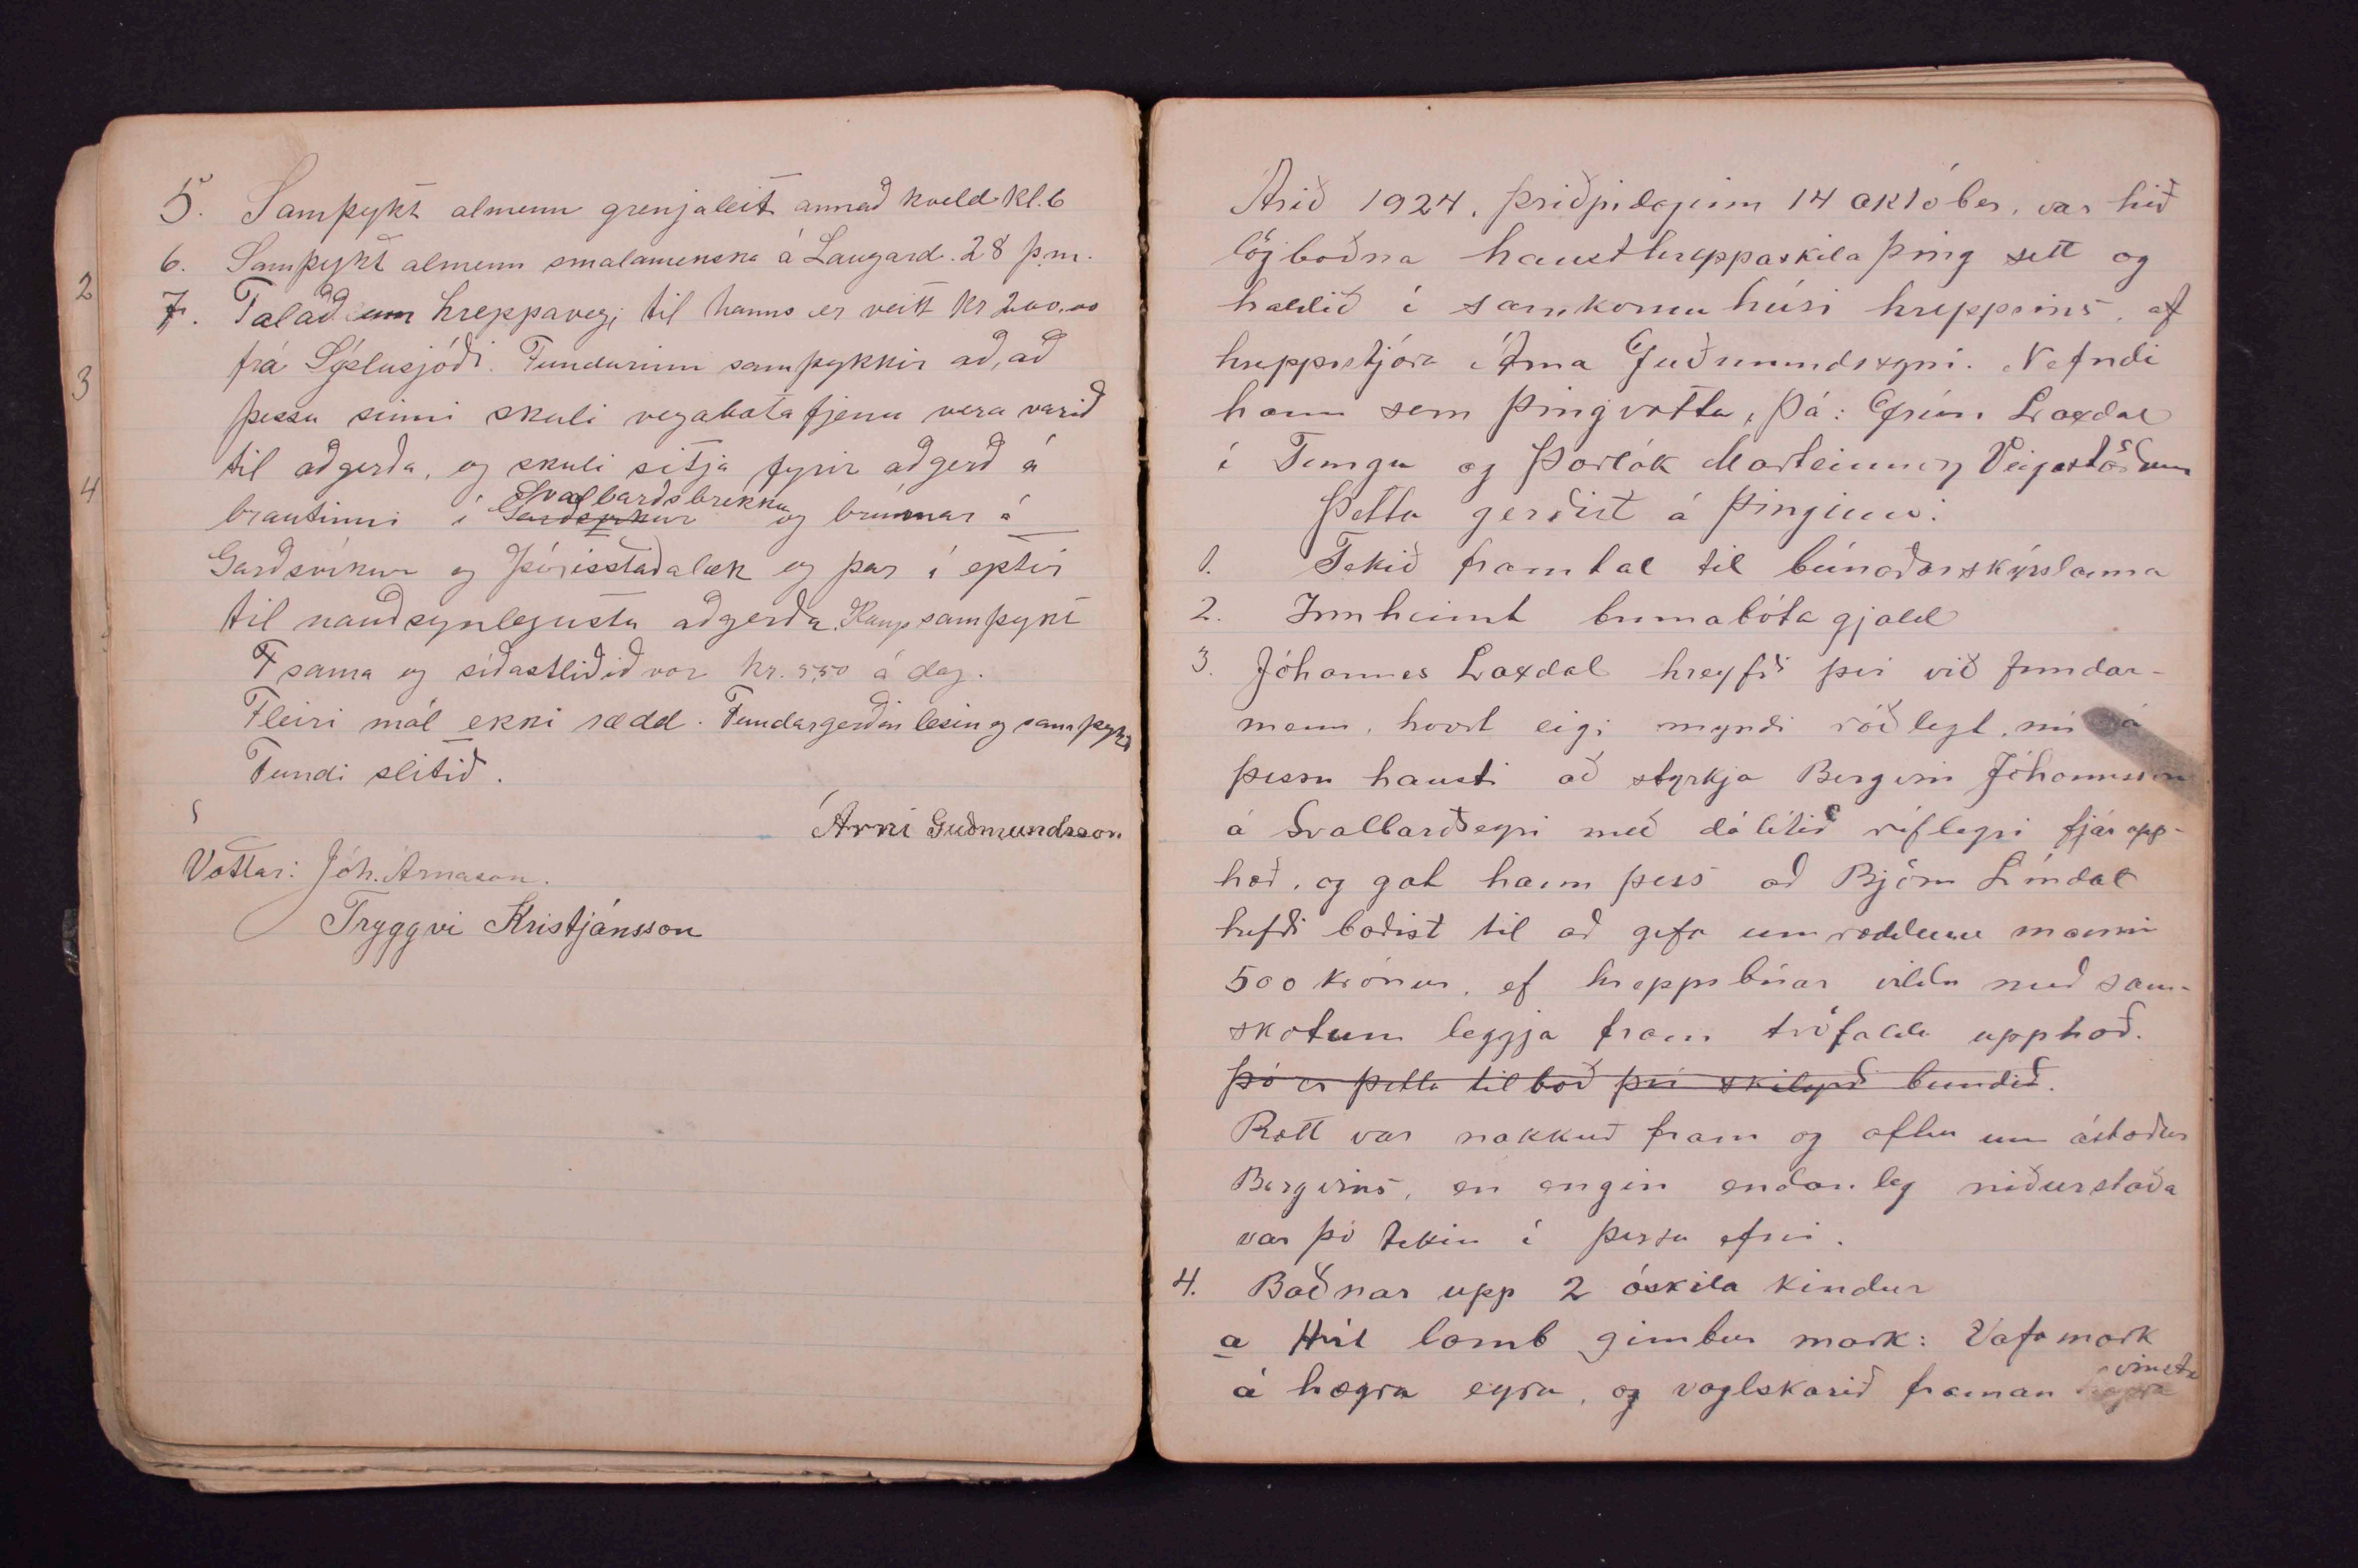 5. Samþykt almenn grenjaleit annað kveld kl. 6
6. Samþykt almenn smalamenska á Laugard. 28 þ.m.
7. Talað um hreppaveg; til hanns er veitt kr 200.00
frá Sýslusjóði. Fundurinn samþykkir að, að
þessu sinni skuli vegabótafjenu vera varið
til aðgerða, og skuli sitja fyrir aðgerð á
Svalbarðsbrekku
brautinni í og brúnnar á
Garðsvíkur og Þórisstaðalæk og þar í eptir
til nauðsynlegustu aðgerða. Kaup samþykt
sama og síðastliðið vor kr. 5,50 á dag.
Fleiri mál ekki rædd. Fundargerðin lesin og samþykt
Fundi slitið.
Árni Guðmundsson
Vottar: Jóh. Árnason.
Tryggvi Kristjánsson
2
3
4
Árið 1924, þriðjudaginn 14 október, var hið
lögboðna hausthreppaskilaþing sett og
haldið í samkomuhúsi hreppsins, af
hreppstjóra Árna Guðmundssyni. Nefndi
hann sem þingvotta, þá: Grím Laxdal
í Tungu og Þorlák Marteinsson Veigastöðum
Þetta gerðist á þinginu:
1. Tekið framtal til búnaðarskýrslanna
2. Innheimt brunabótagjald
3. Jóhannes Laxdal hreyfði því við fundar-
menn, hvort eigi myndi ráðlegt, nú á
þessu hausti að styrkja Bergvin Jóhannsson
á Svalbarðseyri með dálítið ríflegri fjárupp-
hæð, og gat hann þess að Björn Líndal
hefði boðist til að gefa umræddum manni
500 krónur, ef hreppsbúar vildu með sam-
skotum leggja fram tvöfalda upphæð.
Þó er þetta tilboð því skilyrði bundið.
Rætt var nokkuð fram og aftur um ástæður
Bergvins, en engin endanleg niðurstaða
var þó tekin í þessu efni.
4. Boðnar upp 2 óskila kindur
a Hvít lamb gimbur mark: Vafamark
vinstra
á hægra eyra, og vaglskorið framan hægra